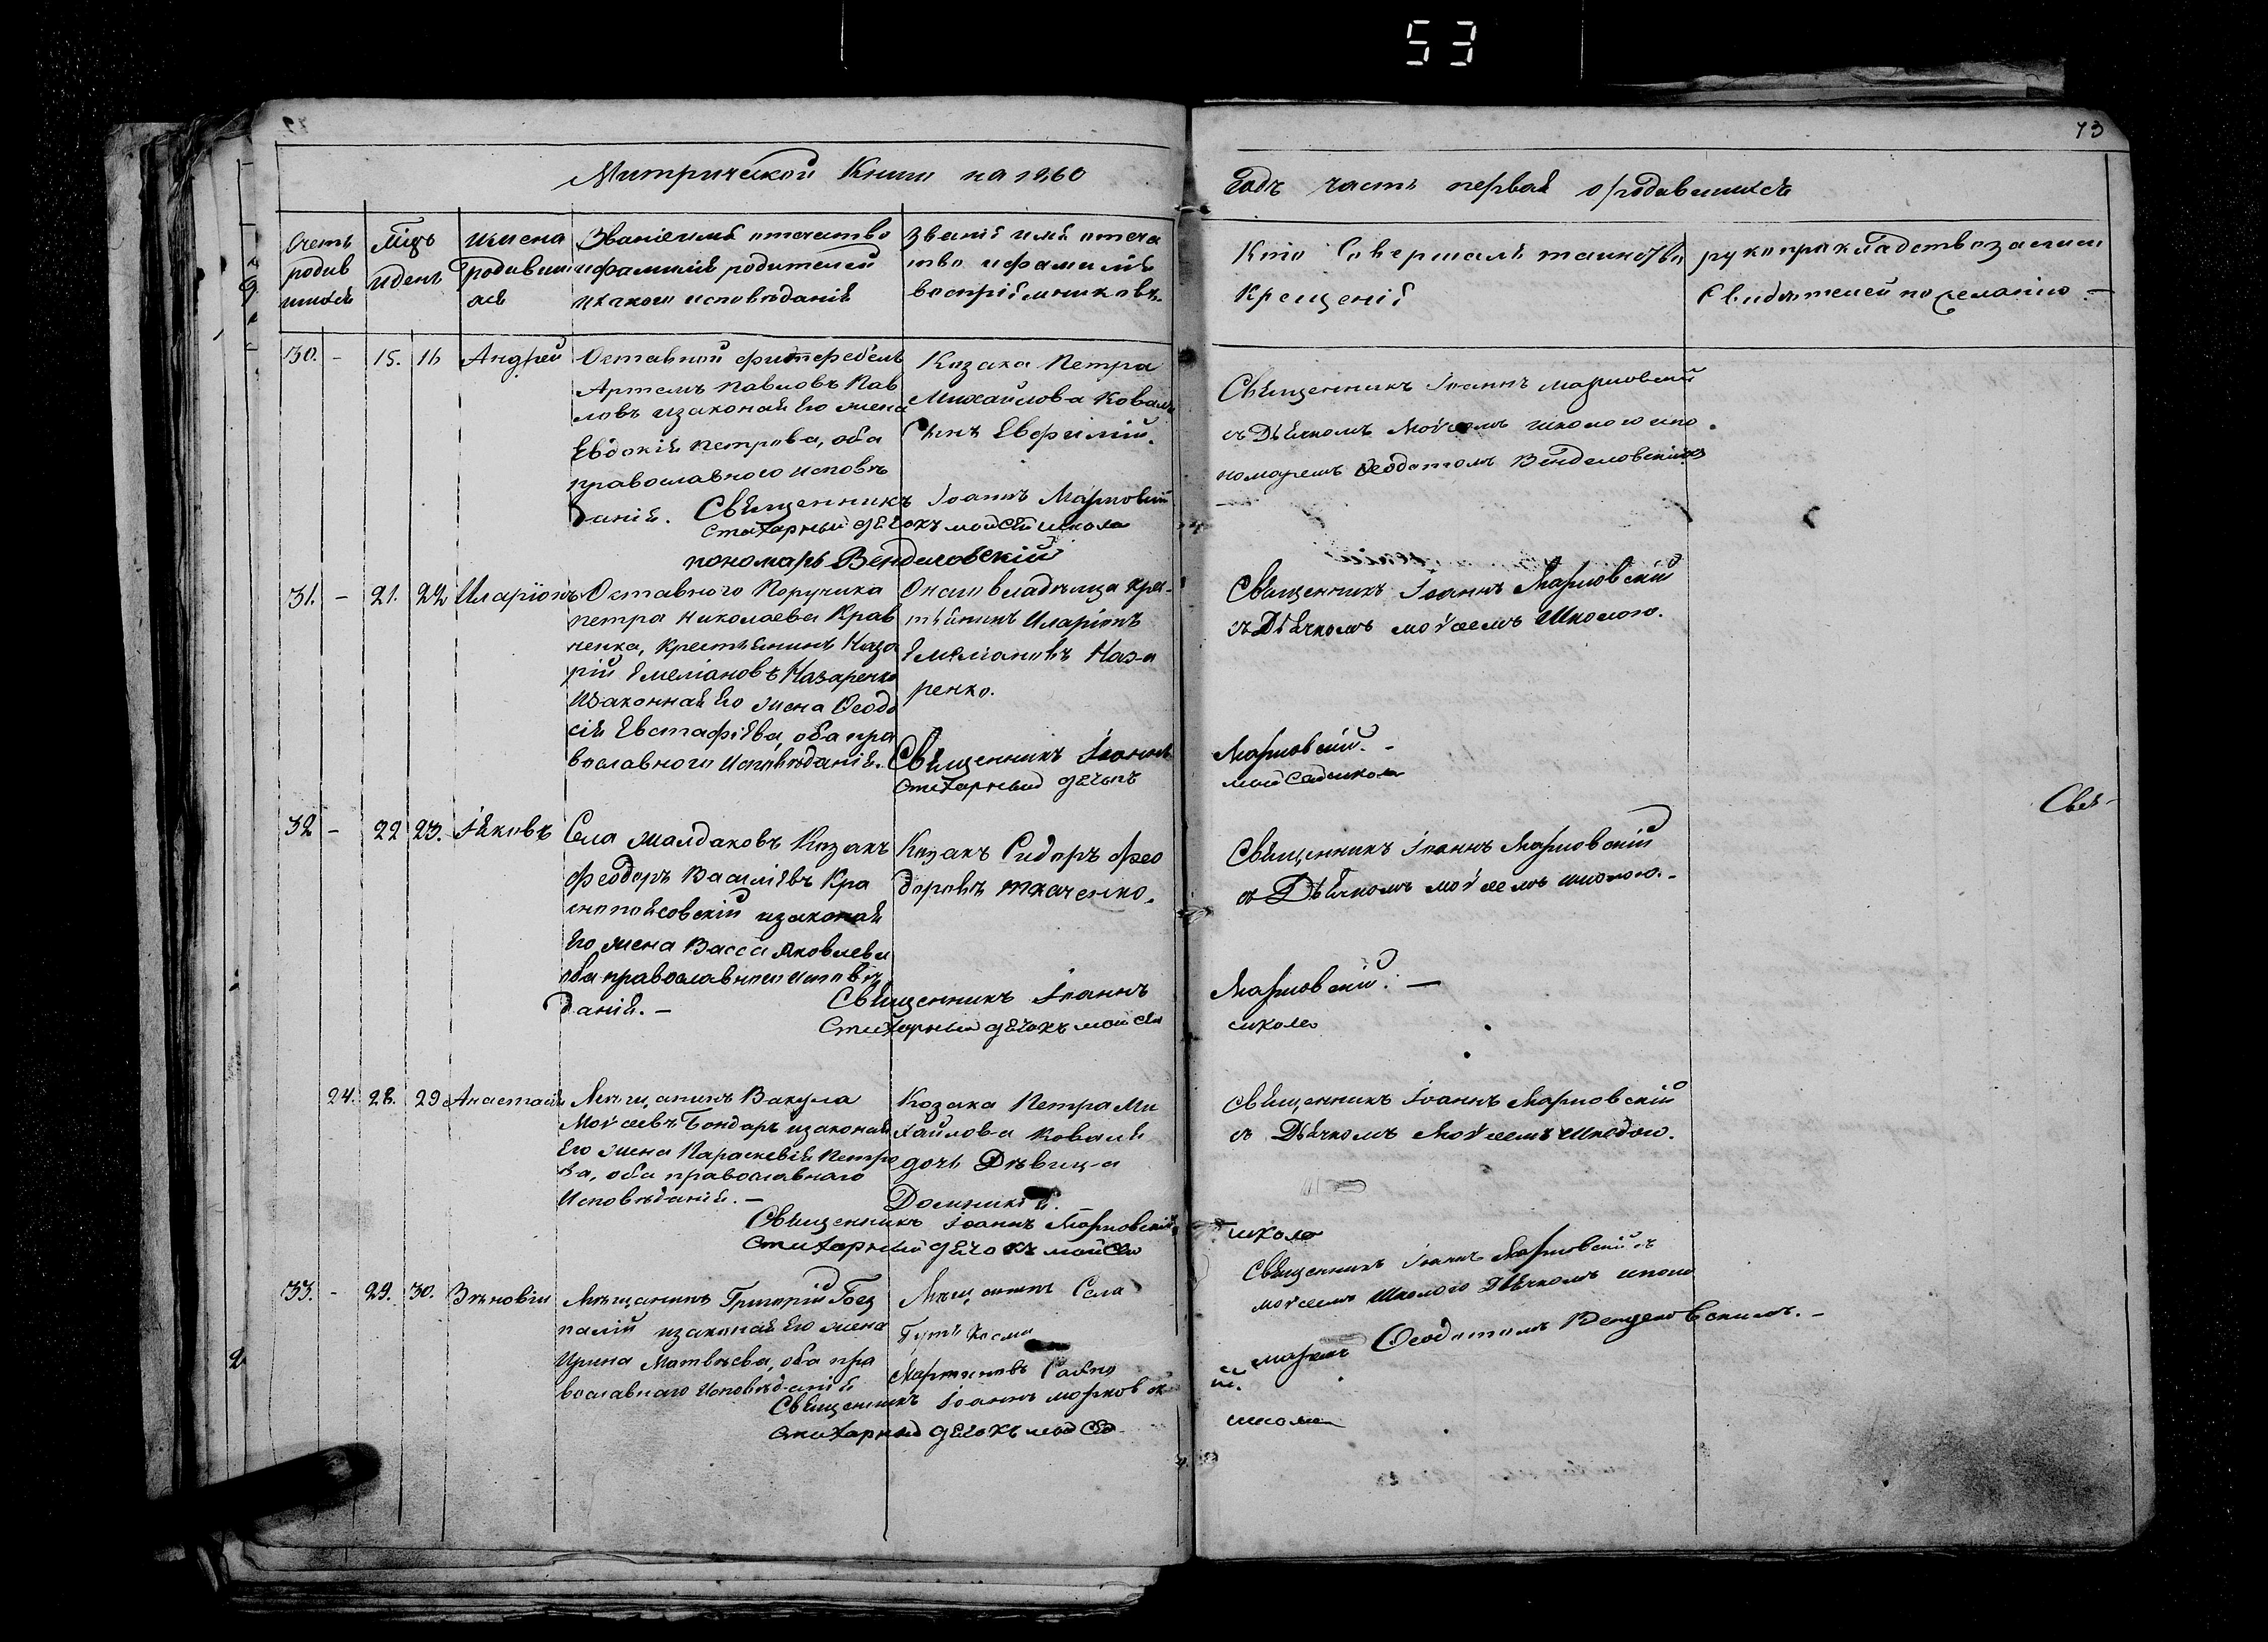 53
73
Митрической Книги на 1860
Годъ часть первая о родившихся
Счетъ родив шихся
Мѣцъ и день
имена родивши хся
Званіе имя отечество и фамилія родителей и какого исповѣданія
Званіе имя отече ство и фамилія воспріемниковъ.
Кто Совершалъ таинство Крещенія
рукоприкладство записи Свидѣтелей по желанію. —
30. – 15. 16 Андрей
Отставной фитфебель
Артемъ Павловъ Пав
ловъ изаконая его жена
Евдокія Петрова, оба
православного исповѣ
данія.
Козака Петра
Михайлова Коваля
Сынъ Евфимій.
Священникъ Іоаннъ Марковскій
съ Дьячкомъ Моѵсеемъ Школою и по
номаремъ Ѳеодотомъ Венделовскимъ
Священникъ Іоаннъ Марковскій
Стихарный дячокъ мойсей школа
пономарь Венделовскій
31. – 21. 22 Иларіонъ
Отставного Поручика
Петра Николаева Крав
ченка, Крестьянинъ Наза
рій Емеліановъ Назаренко
изаконная Его жена Ѳеодо
сія Евстафіева, оба пра
вославного Исповѣданія.
Оного владѣльца кре
стьянинъ Иларіонъ
Емеліановъ Наза
ренко.
Священникъ Іоаннъ Марковскій
съ Дьячкомъ моѵсеемъ Школою.
Священникъ Іоаннъ Марковскій. –
Стихарный дячокъ мойсей школа
Свя-
32 – 22 23. Іяковъ
Села Маядаковъ Козакъ
Феодоръ Василіевъ Кра
снопоясовскій изаконая
Его жена Васса Яковлева
оба православного исповѣ
данія. –
Козакъ Сидоръ Фео
доровъ ткаченко.
Священникъ Іоаннъ Марковскій
съ Дьячкомъ моѵсеемъ школою. –
Священникъ Іоаннъ Марковскій. —
Стихарный дячокъ мойсей школа
24. 28. 29 Анастасія
Мѣщанинъ Вакула
Моѵсеевъ Бондарь изаконая
Его жена Параскевія Петро
ва, оба православнаго
Исповѣданія. –
Козака Петра Ми
хайлова Коваля
дочь Дѣвица
Домникія.
Священникъ Іоаннъ Марковскій
съ Дьячкомъ Моѵсеемъ Школою.
Священникъ Іоаннъ Марковскій
Стихарный дячокъ мойсей школа
33. – 29. 30. Зѣновій
Мѣщанинъ Григорій
изаконая Его жена
Ирина Матвѣева, оба пра
вославнаго Исповѣданія
Мѣщанинъ Села
Косма
Мартиновъ
Священникъ Іоаннъ Марковскій съ
моѵсеемъ Школою Дьячкомъ и поно
маремъ Ѳеодотомъ Венделовскимъ. –
Священникъ Іоаннъ Марковскій.
Стихарный дячокъ мойсей школа